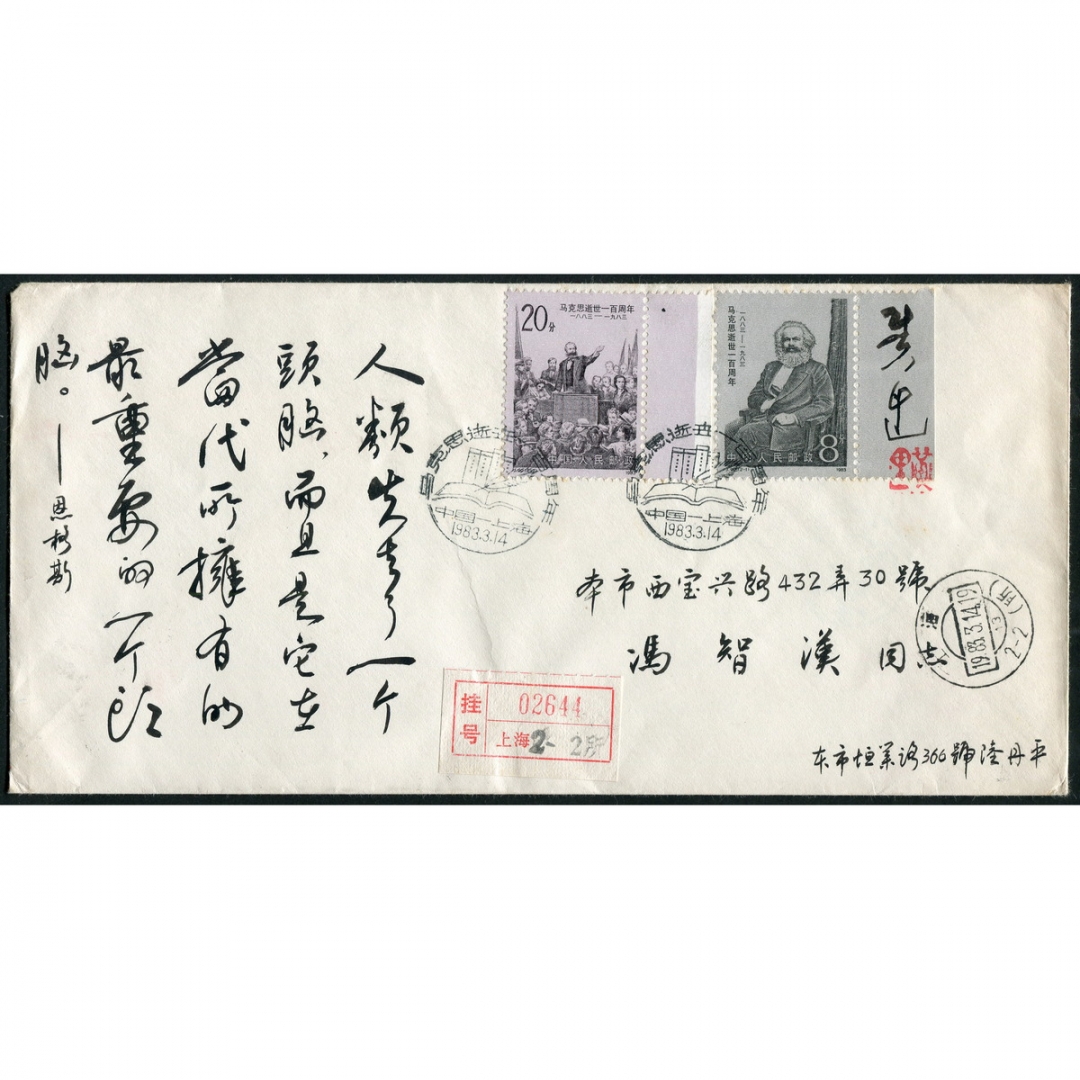 人類失去了一个
頭腦，而且是它在
當代所擁有的
最重要的一个头
脑。—恩格斯
20分
马克思逝世一百周年
一八八三—一九八三
中国人民邮政
一八八三—一九八三
马克思逝世一百周年
8分
中国人民邮政
1983
马克思逝世一百周年
中国—上海
1983.3.14
马克思逝世一百周年
中国—上海
1983.3.14
本市西宝兴路432弄30號
馮智漢同志
上海
1983.3.14.19
2-2(所)
挂号
02644
上海2-2所
本市恒業路366號陸丹平